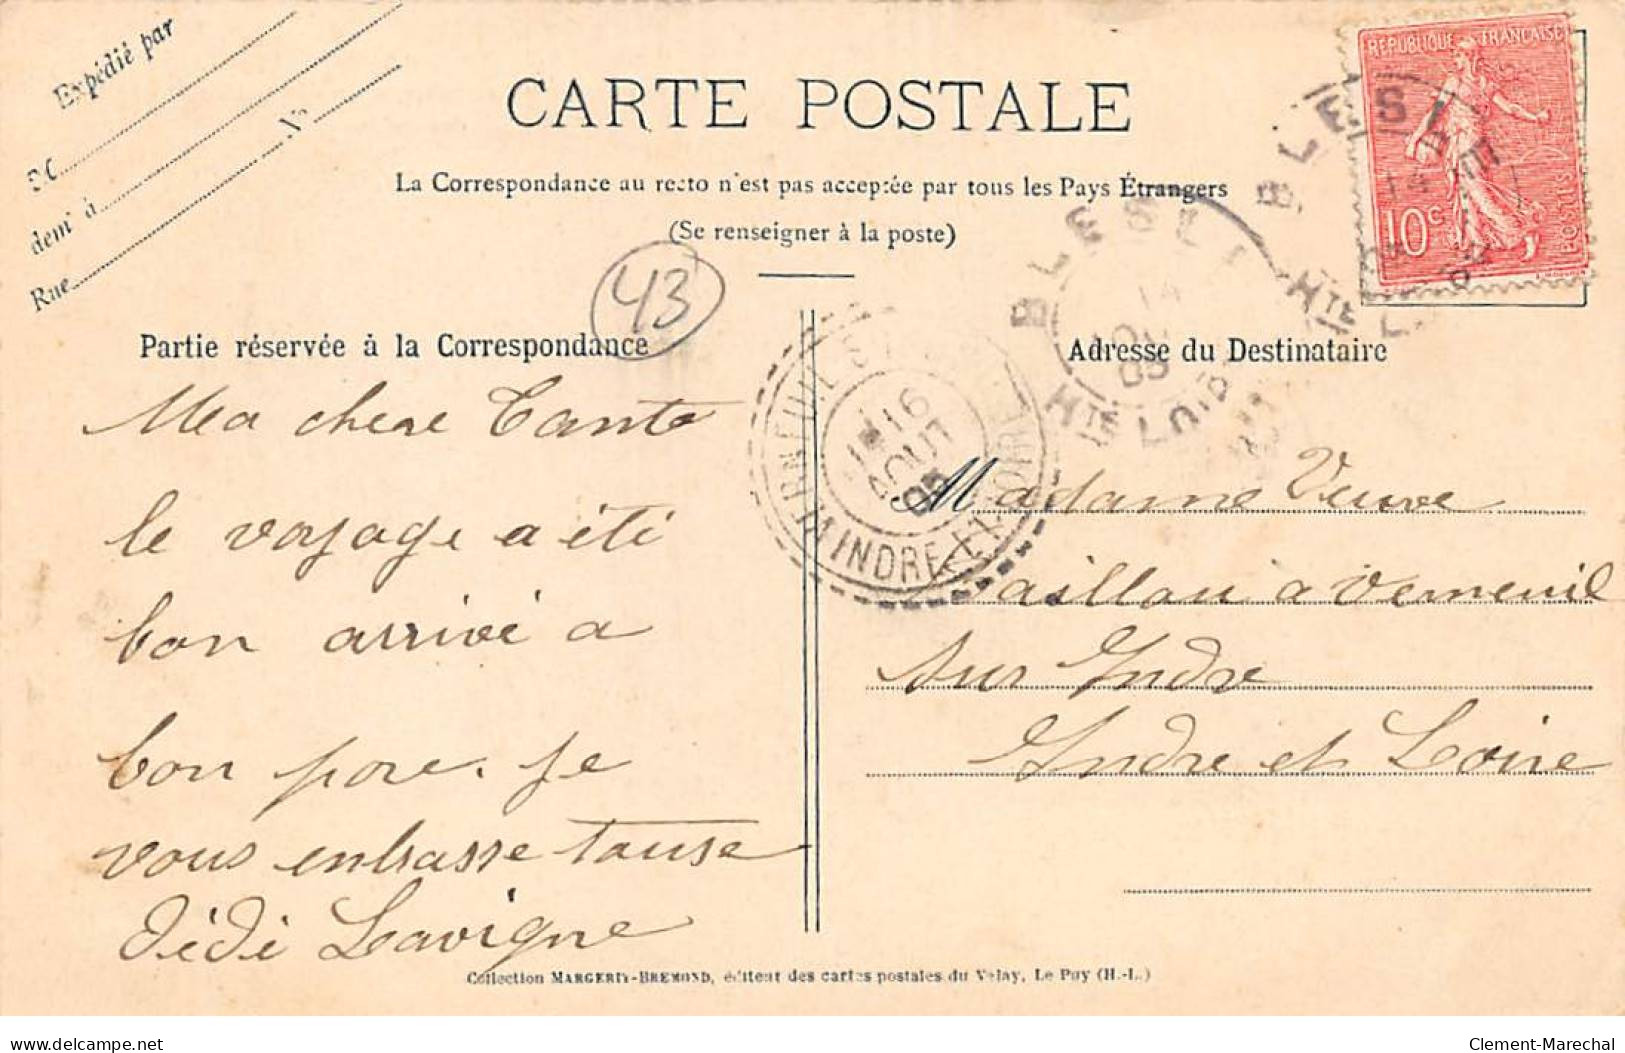 Expédié par
M
demt à
Rue
No
CARTE POSTALE
La Correspondance au recto n'est pas acceptée par tous les Pays Étrangers
(Se renseigner à la poste)
RÉPUBLIQUE FRANÇAISE
10c
POSTES
BLESLE
14
05
HTE LOIRE
BLESLE
14
AOUT
05
HTE LOIRE
43
Partie réservée à la Correspondance
Ma chere Tante
le voyage a été
bon arrivé a
bon pore. je
vous enbrasse touse
Dédé Lavigne
VERNEUIL
16
AOUT
05
INDRE ET LOIRE
Adresse du Destinataire
Madame Veuve
aillou a Verneuil
sur Indre
Indre et Loire
Collection MARGERIT-BREMOND, éditeur des cartes postales du Velay, Le Puy (H.-L.)
delcampe.net
Clement-Marechal